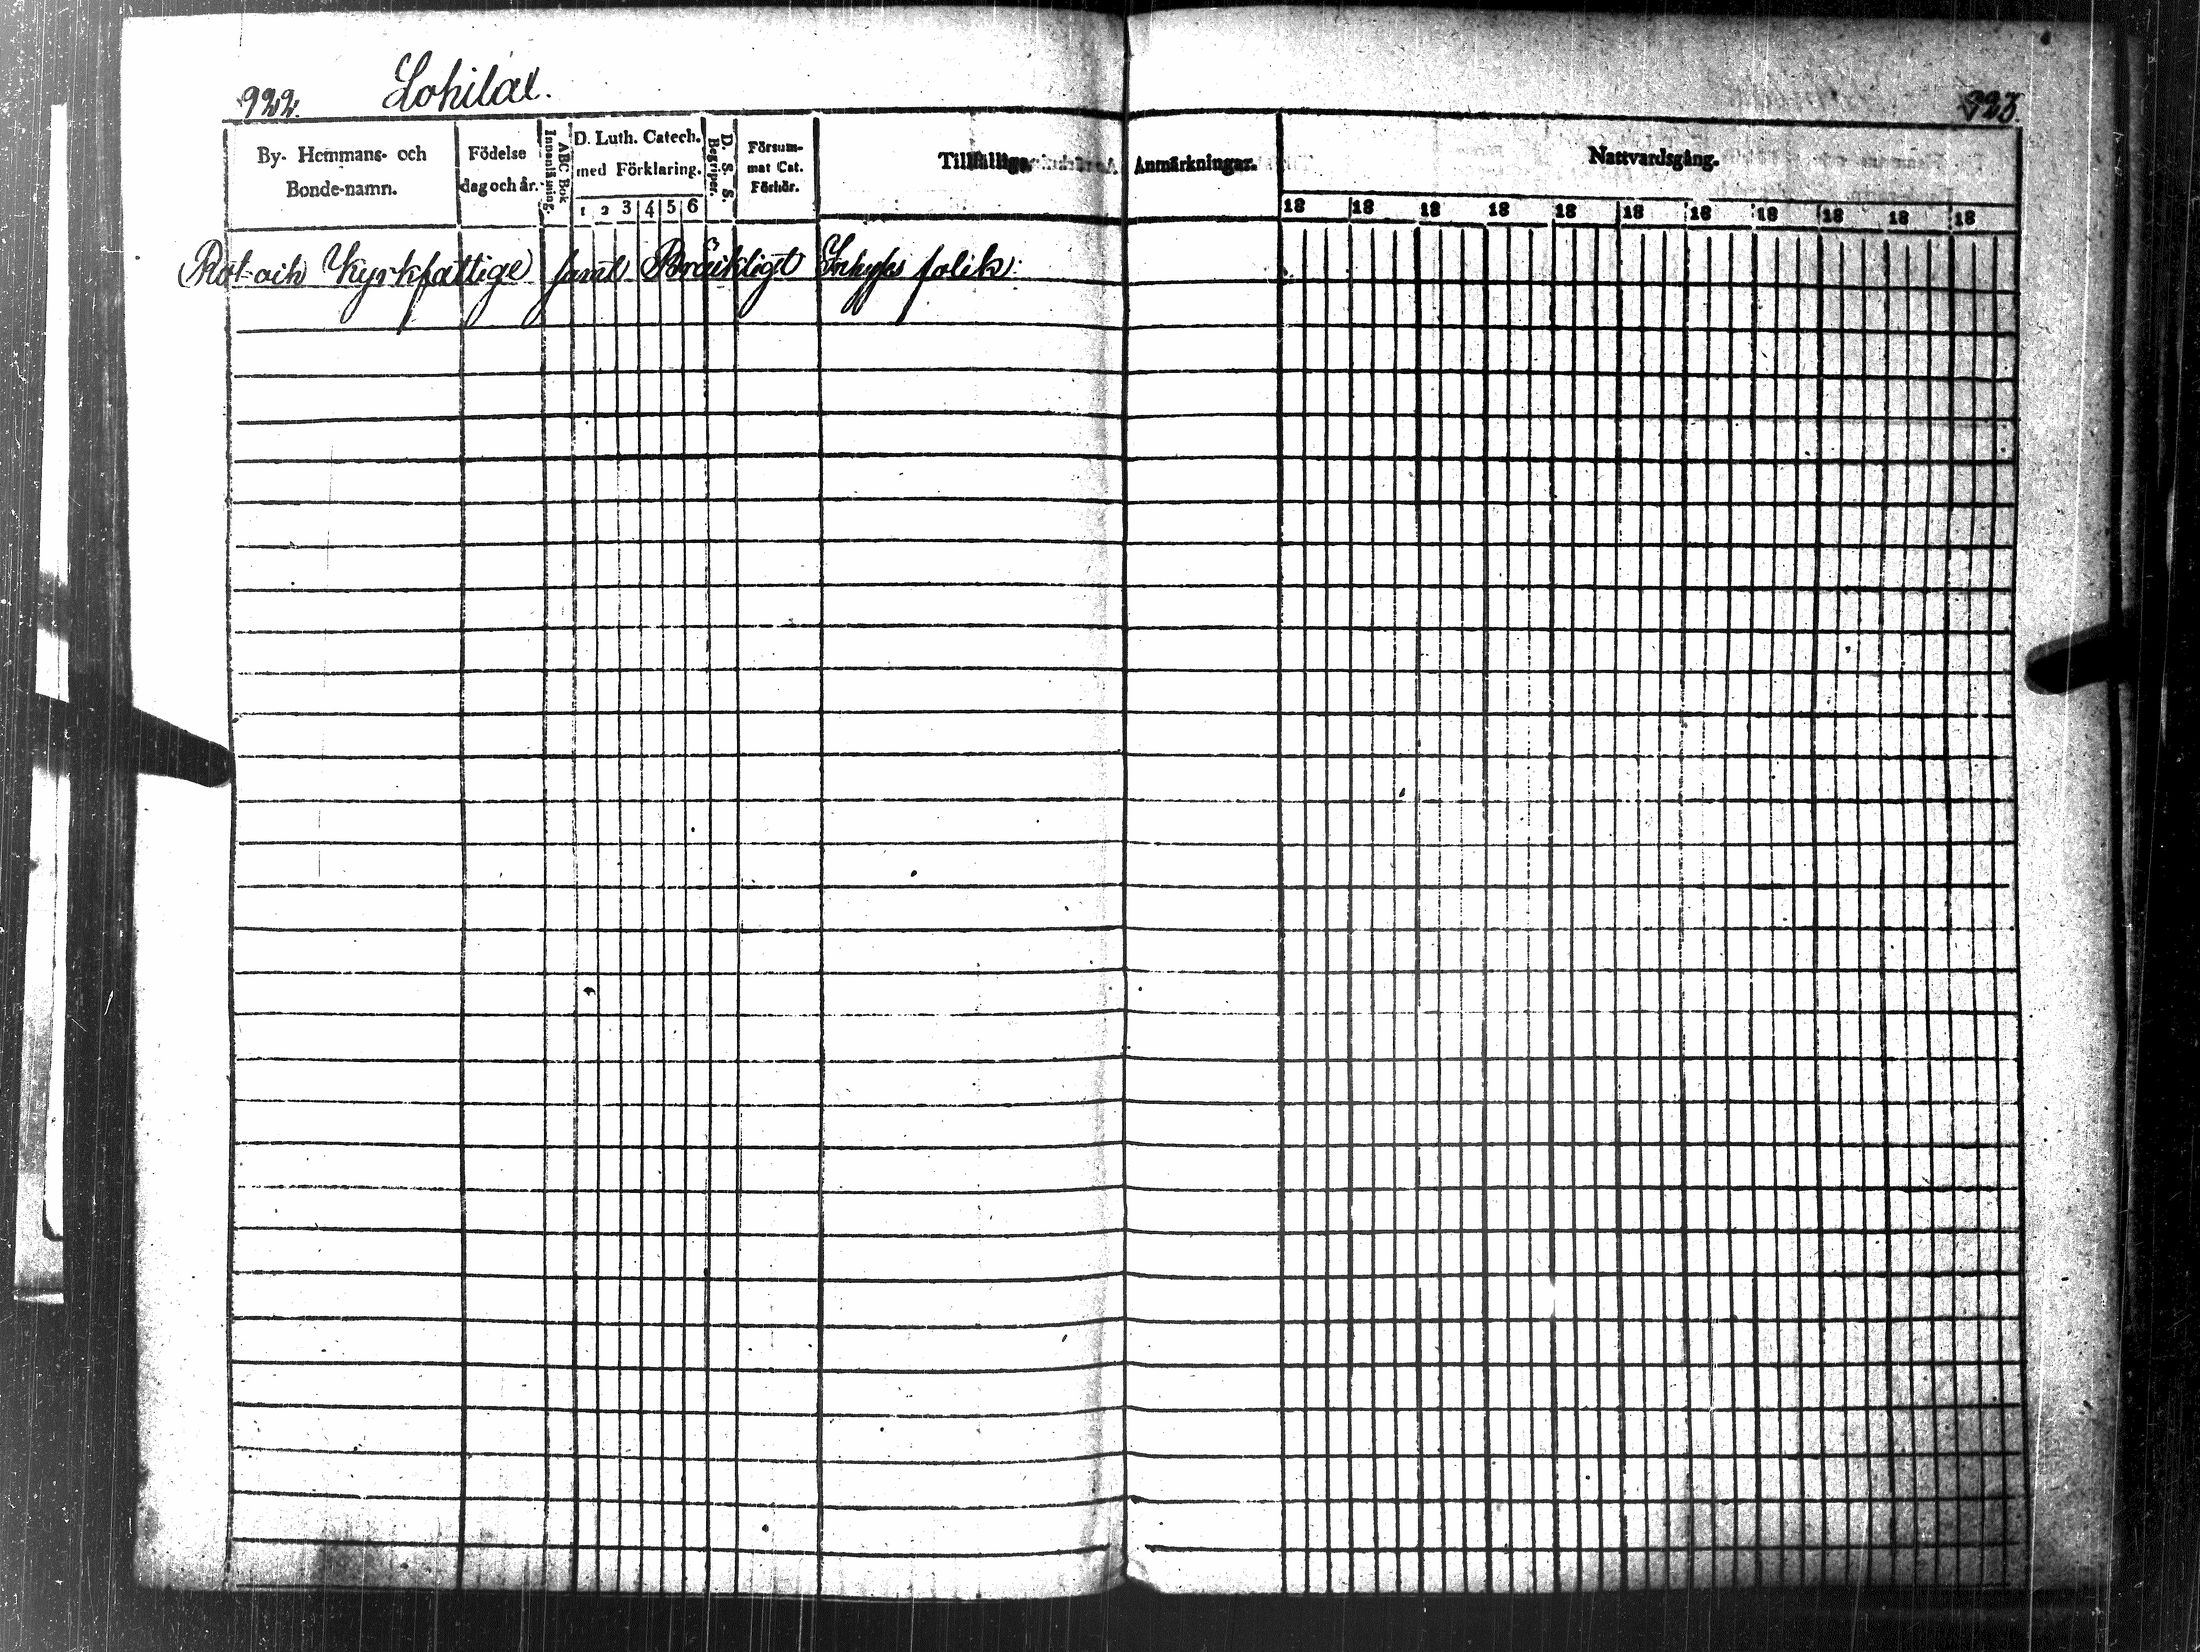 922. Lohilax. 923.
By- Hemmans- och Bonde-namn.
Födelse dag och år.
ABC Bok Innanläsning.
D. Luth. Catech. med Förklaring.
1 2 3 4 5 6
D. S. S. Begriper.
Försum- mat Cat. Förhör.
Tillfällige Anmärkningar.
Nattvardsgång.
18 18 18 18 18 18 18 18 18 18 18
Rot- och Kyrkfattige samt Bräckligt Inhyses folck: